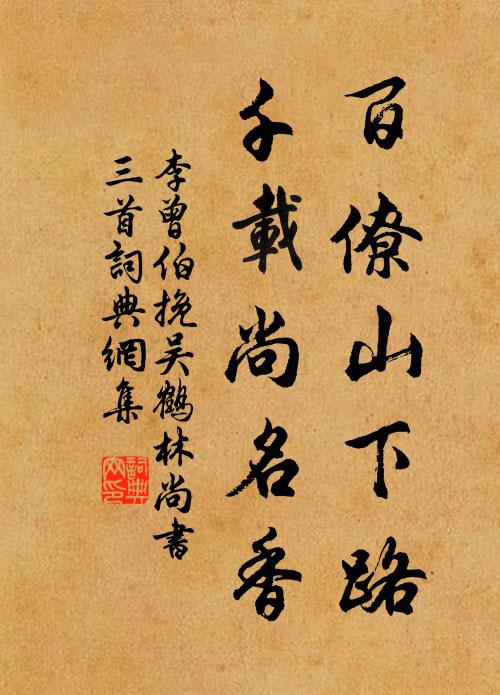 百僚山下路
千載尚名香
李曾伯挽吳鶴林尚書
三首詞典網集
詞典
网印